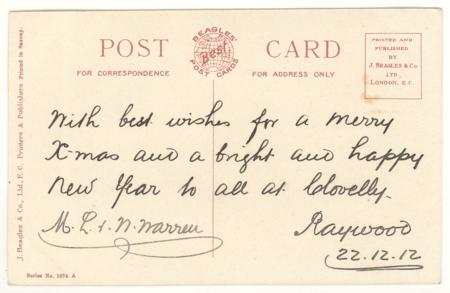 POST CARD
BEAGLES' Best POST CARDS
FOR CORRESPONDENCE
FOR ADDRESS ONLY
PRINTED AND
PUBLISHED
BY
J. BEAGLES & Co
LTD.,
LONDON, E.C.
J. Beagles & Co., Ltd., E.C. Printers & Publishers
With best wishes for a merry
X-mas and a bright and happy
New Year to all at Clovelly.
M. L. & W. Warren
Raywood
22.12.12
Series No. A